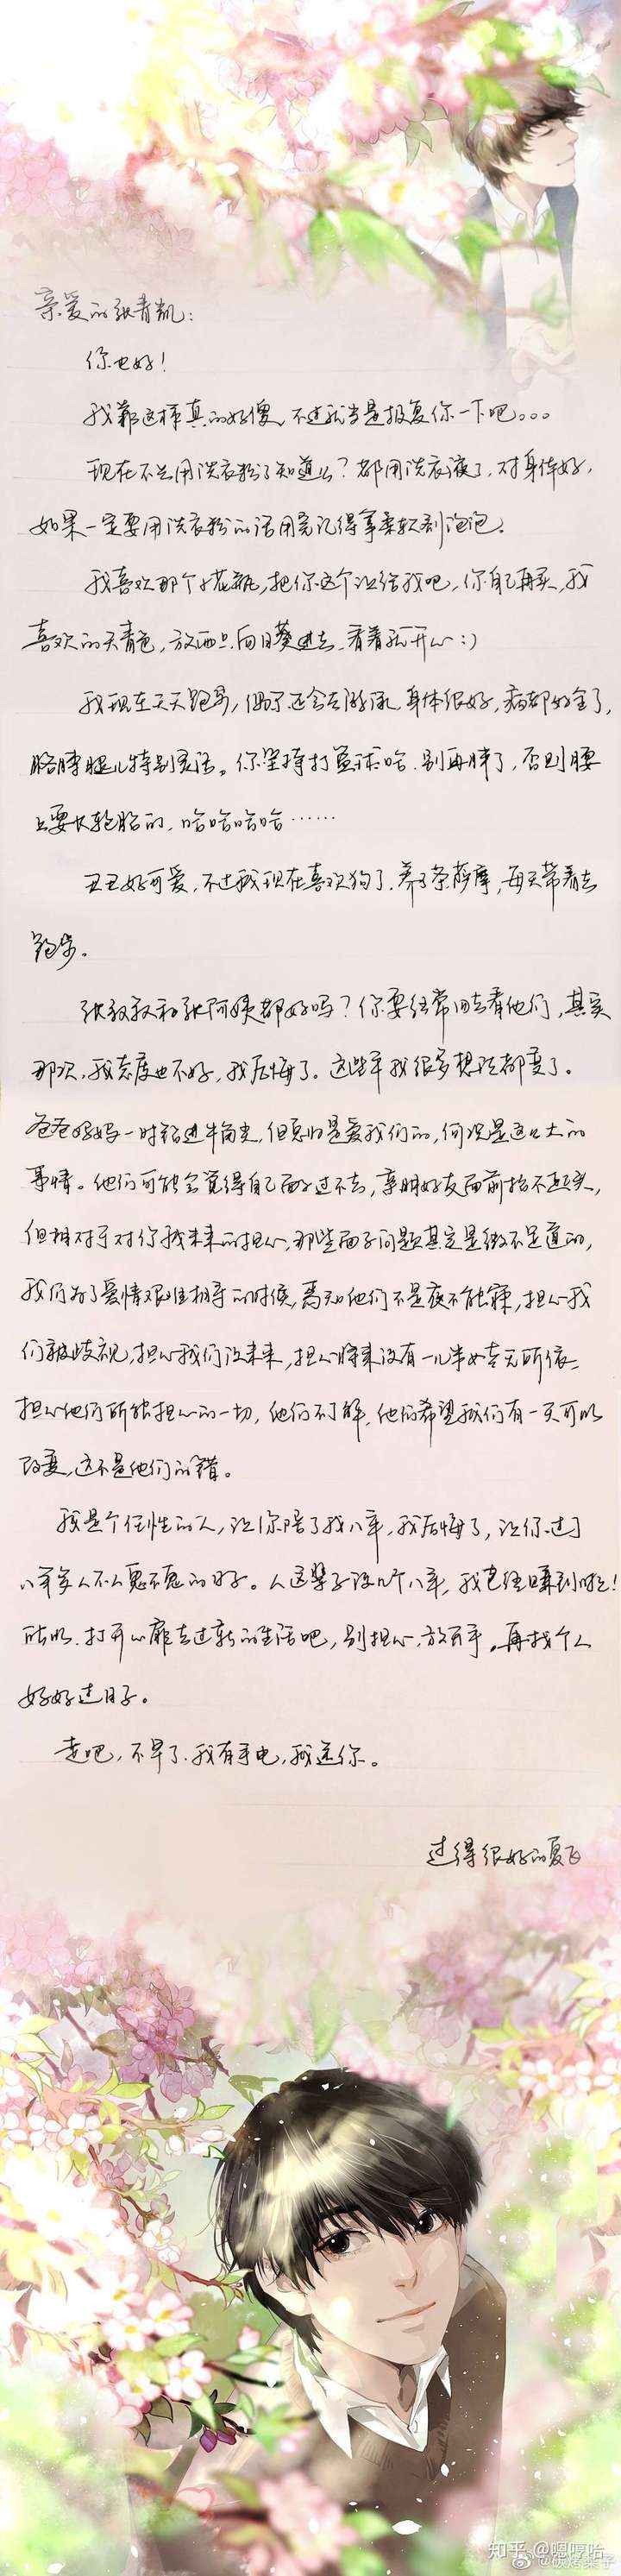 亲爱的张青凯：
你也好！
我觉这样真的好傻，不过就当是报复你一下吧。。。
现在不兴用洗衣粉了知道么？都用洗衣液了，对身体好，
如果一定要用洗衣粉的话用完记得拿柔软剂泡泡。
我喜欢那个小花瓶，把你这个让给我吧，你自己再买，我
喜欢的天青色，放两只向日葵进去，看着就开心：）
我现在天天跑步，偶尔还会去游泳，身体很好，病都好全了，
胳膊腿儿特别灵活。你坚持打篮球哈，别再胖了，否则腰
上要长轮胎的，哈哈哈哈……
丑丑好可爱，不过我现在喜欢狗了，养了条萨摩，每天带着去
跑步。
张叔叔和张阿姨都好吗？你要经常回去看他们，其实
那次，我态度也不好，我后悔了。这些年我很多想法都变了。
爸爸妈妈一时钻进牛角尖，但总归是爱我们的，何况是这么大的
事情。他们可能会觉得自己面子过不去，亲朋好友面前抬不起头，
但相对于对你我未来的担心，那些面子问题其实是微不足道的，
我们为了爱情艰难相守的时候，焉知他们不是夜不能寐，担心我
们被歧视，担心我们没未来，担心将来没有一儿半女老无所依……
担心他们所能担心的一切，他们不了解，他们希望我们有一天可以
改变，这不是他们的错。
我是个任性的人，让你陪了我八年，我后悔了，让你过了
八年多人不人鬼不鬼的日子。人这辈子没几个八年，我已经赚到啦！
所以，打开心扉去过新的生活吧，别担心，放开手，再找个人
好好过日子。
走吧，不早了，我有手电，我送你。
过得很好的夏飞
知乎 @嗯哼哈